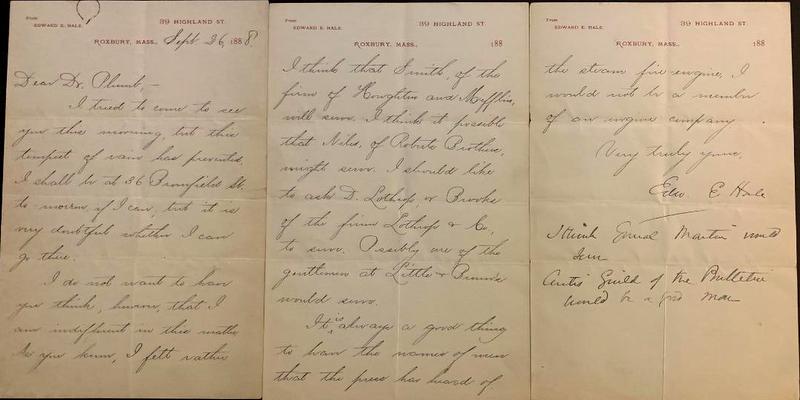 From
EDWARD E. HALE.
39 HIGHLAND ST.
ROXBURY, MASS., Sept 26, 1888
Dear Dr. Plumb,—
I tried to come to see
you this morning, but this
tempest of rain has prevented.
I shall be at 36 Bromfield St.
to-morrow, if I can, but it is
very doubtful whether I can
go there.
I do not want to have
you think, however, that I
am indifferent in this matter.
As you know, I felt rather
From
EDWARD E. HALE.
39 HIGHLAND ST.
ROXBURY, MASS., 188
I think that Smith, of the
firm of Houghton and Mifflin,
will serve. I think it possible
that Niles, of Roberts Brothers,
might serve. I should like
to ask D. Lothrop, or Brooks
of the firm Lothrop & Co.,
to serve. Possibly one of the
gentlemen at Little & Brown's
would serve.
It is always a good thing
to have the names of men
that the press has heard of.
From
EDWARD E. HALE.
39 HIGHLAND ST.
ROXBURY, MASS., 188
the steam fire-engine, I
would not be a member
of an engine company.
Very truly yours,
Edw. E. Hale
I think General Martin would
serve
Curtis Guild of the Bulletin
would be a good man